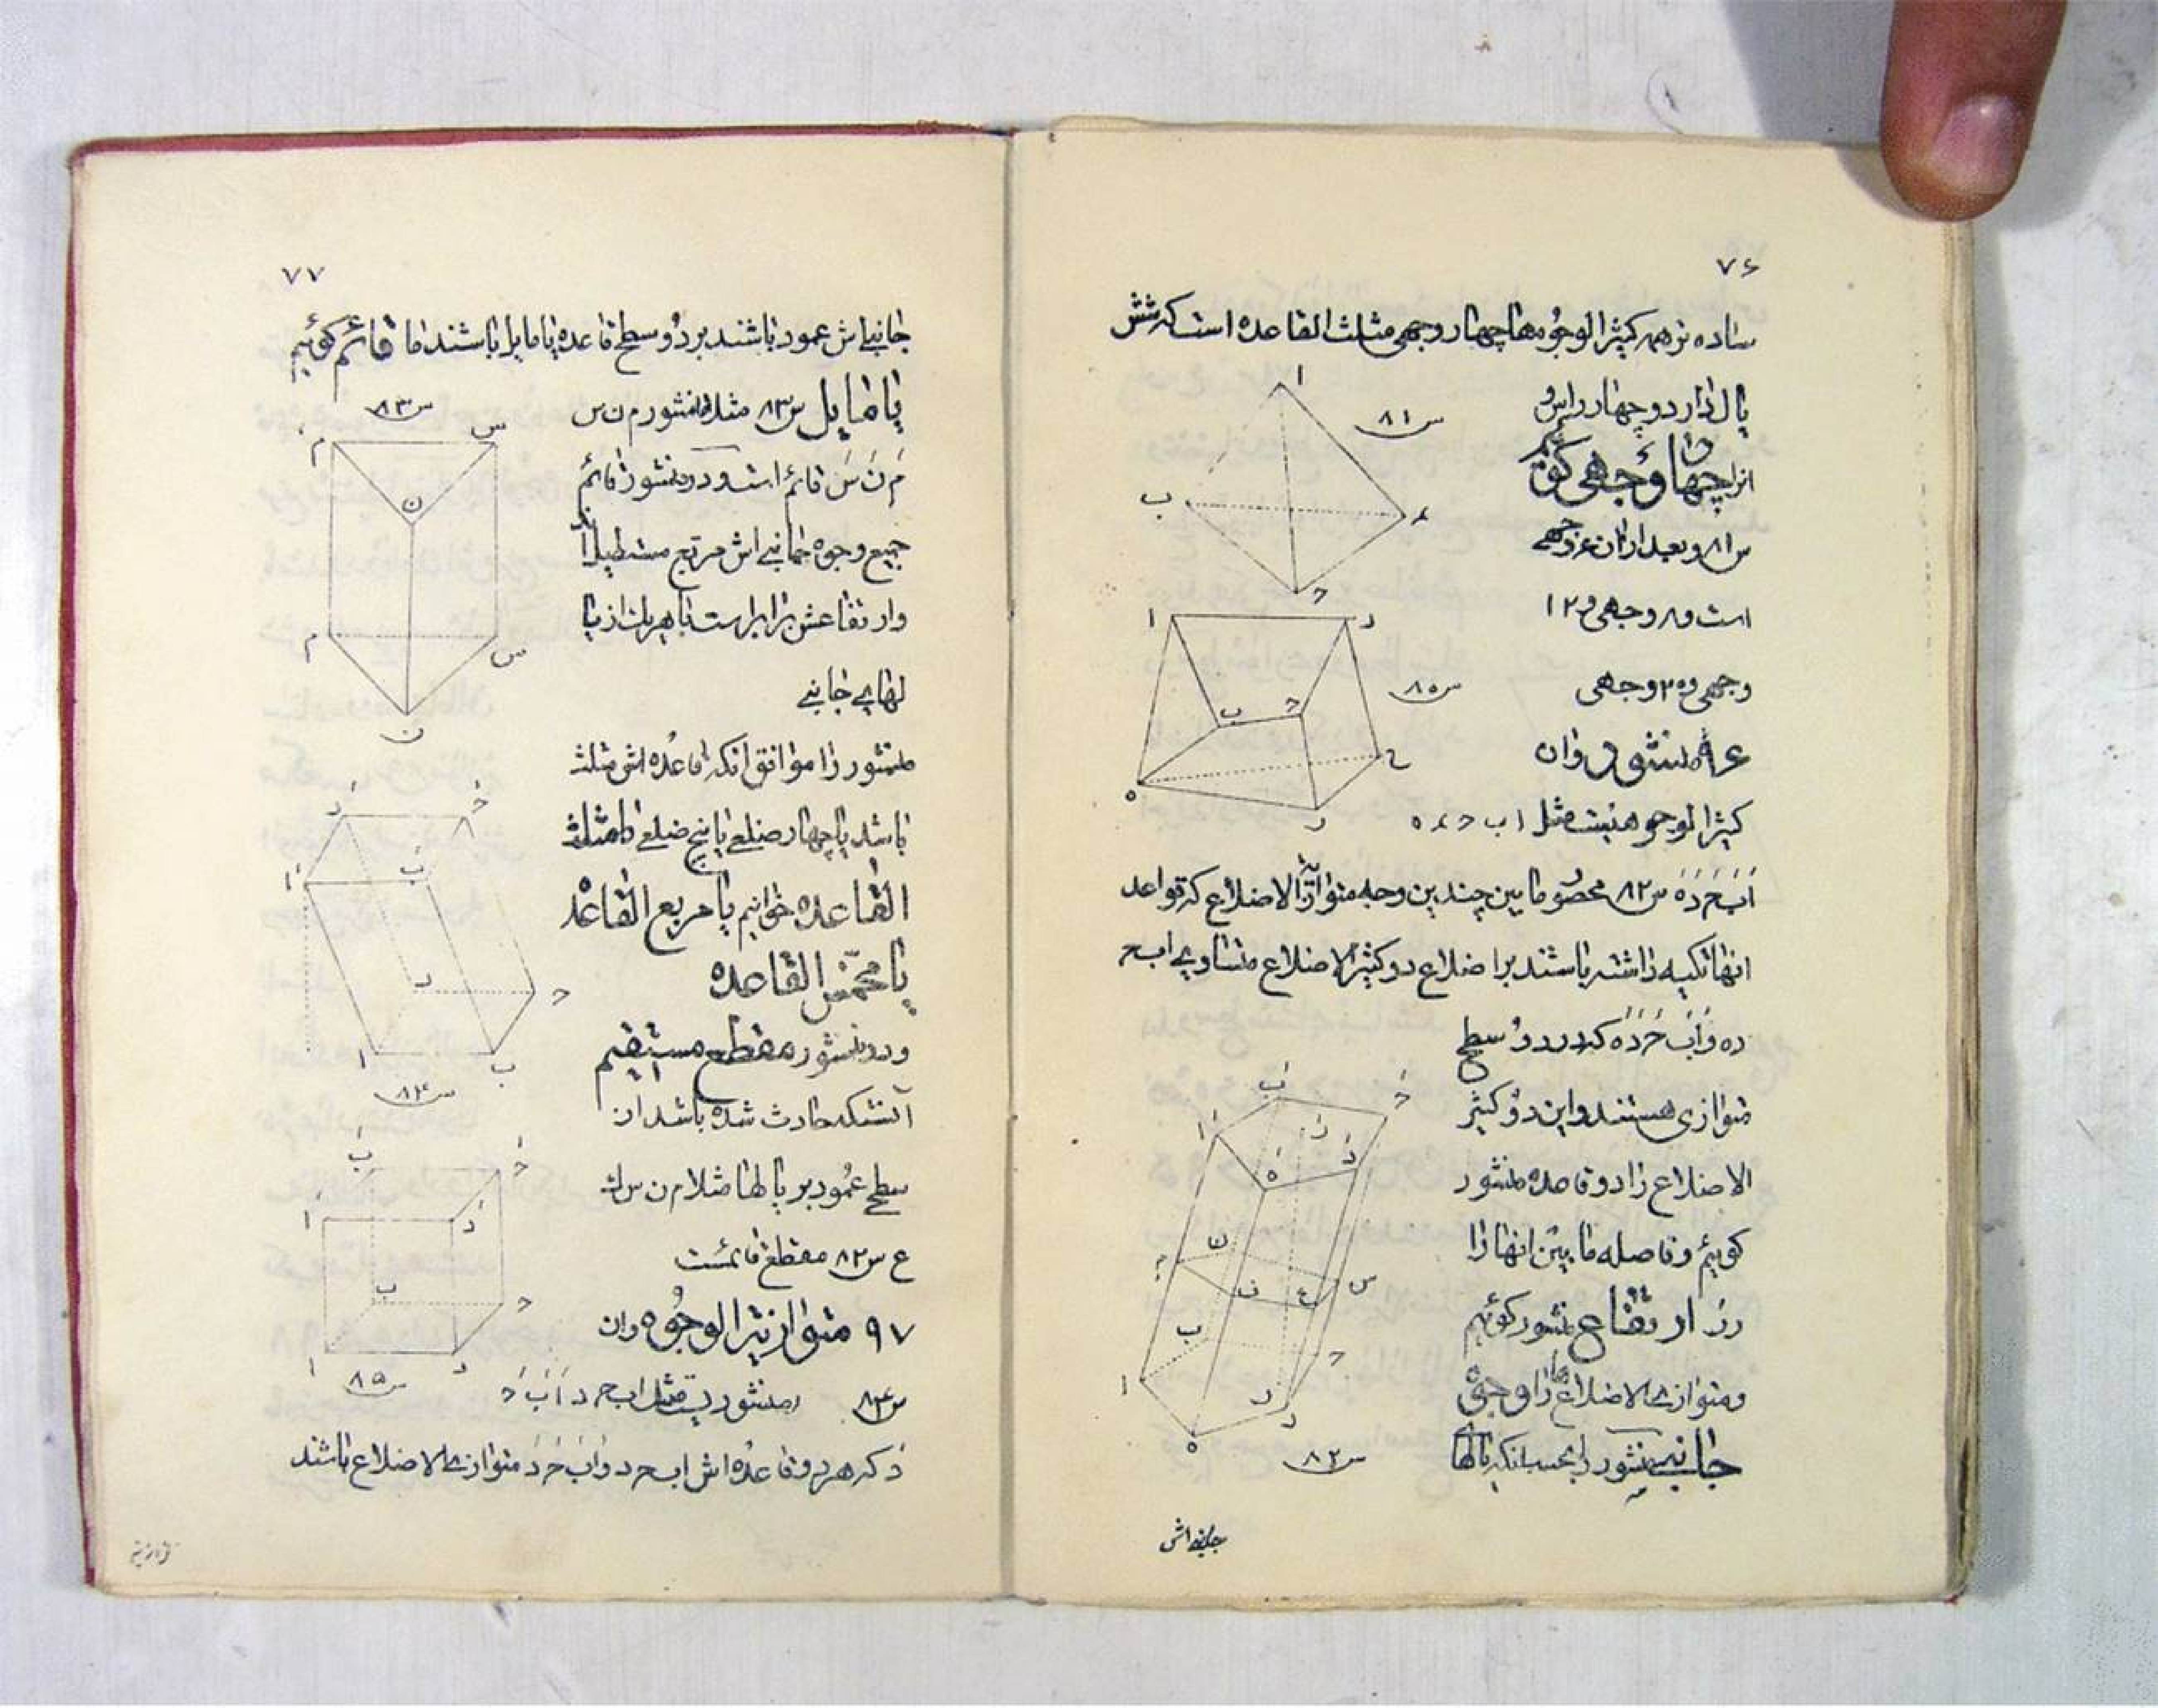 ۷۶
ساده ترهمه کثیرالوجوه‌ها چهار وجهی مثلث القاعده است که شش
یال دارد و چهار راس و
انرا چهار وجهی گوئیم
س۸۱ و بعد از ان ۶ وجهی
است و ۸ وجهی و ۱۲
وجهی و ۲۰ وجهی
۹۶ منشور وان
کثیرالوجوهیست مثل ا ب ح د ه
اَبَحَدَهَ س۸۲ محصور مابین چندین وجه متوازی الاضلاع که قواعد
انها تکیه داشته باشند بر اضلاع دو کثیرالاضلاع متساوی ا ب ح
د ه و اَبَ حَدَهَ که در دو سطح
متوازی هستند و این دو کثیر
الاضلاع را دو قاعده منشور
گوئیم و فاصله مابین انها را
ارتفاع منشور گوئیم
و متوازی الاضلاعها را وجوه
جانبی منشور را بحسب انکه یالهای
جانبی‌اش
س۸۱
س۸۰
س۸۲
۷۷
جانبی‌اش عمود باشند بر دو سطح قاعده یا مایل باشند ما قائم گوئیم
یا مایل س۸۳ مثلا منشور م ن س
مَ نَ سَ قائم است و در منشور قائم
جمیع وجوه جانبی‌اش مربع مستطیل‌اند
وارتفاعش برابر است با هریک از یا
لهای جانبی
منشور را موافق انکه قاعده‌اش مثلث
باشد یا چهار ضلعی یا پنج ضلعی مثلث
القاعده خوانیم یا مربع القاعده
یا مخمس القاعده
و در منشور مقطع مستقیم
آنستکه حادث شده باشد از
سطح عمود بر یالها مثلا م ن س
ع س۸۲ مقطع قائمست
۹۷ متوازی الوجوه وان
س۸۴ منشوریست مثل ا ب ح د اَ بَ حَ
دَ که هر دو قاعده‌اش ا ب ح د و اَبَ حَ دَ متوازی الاضلاع باشند
س۸۳
س۸۴
س۸۵